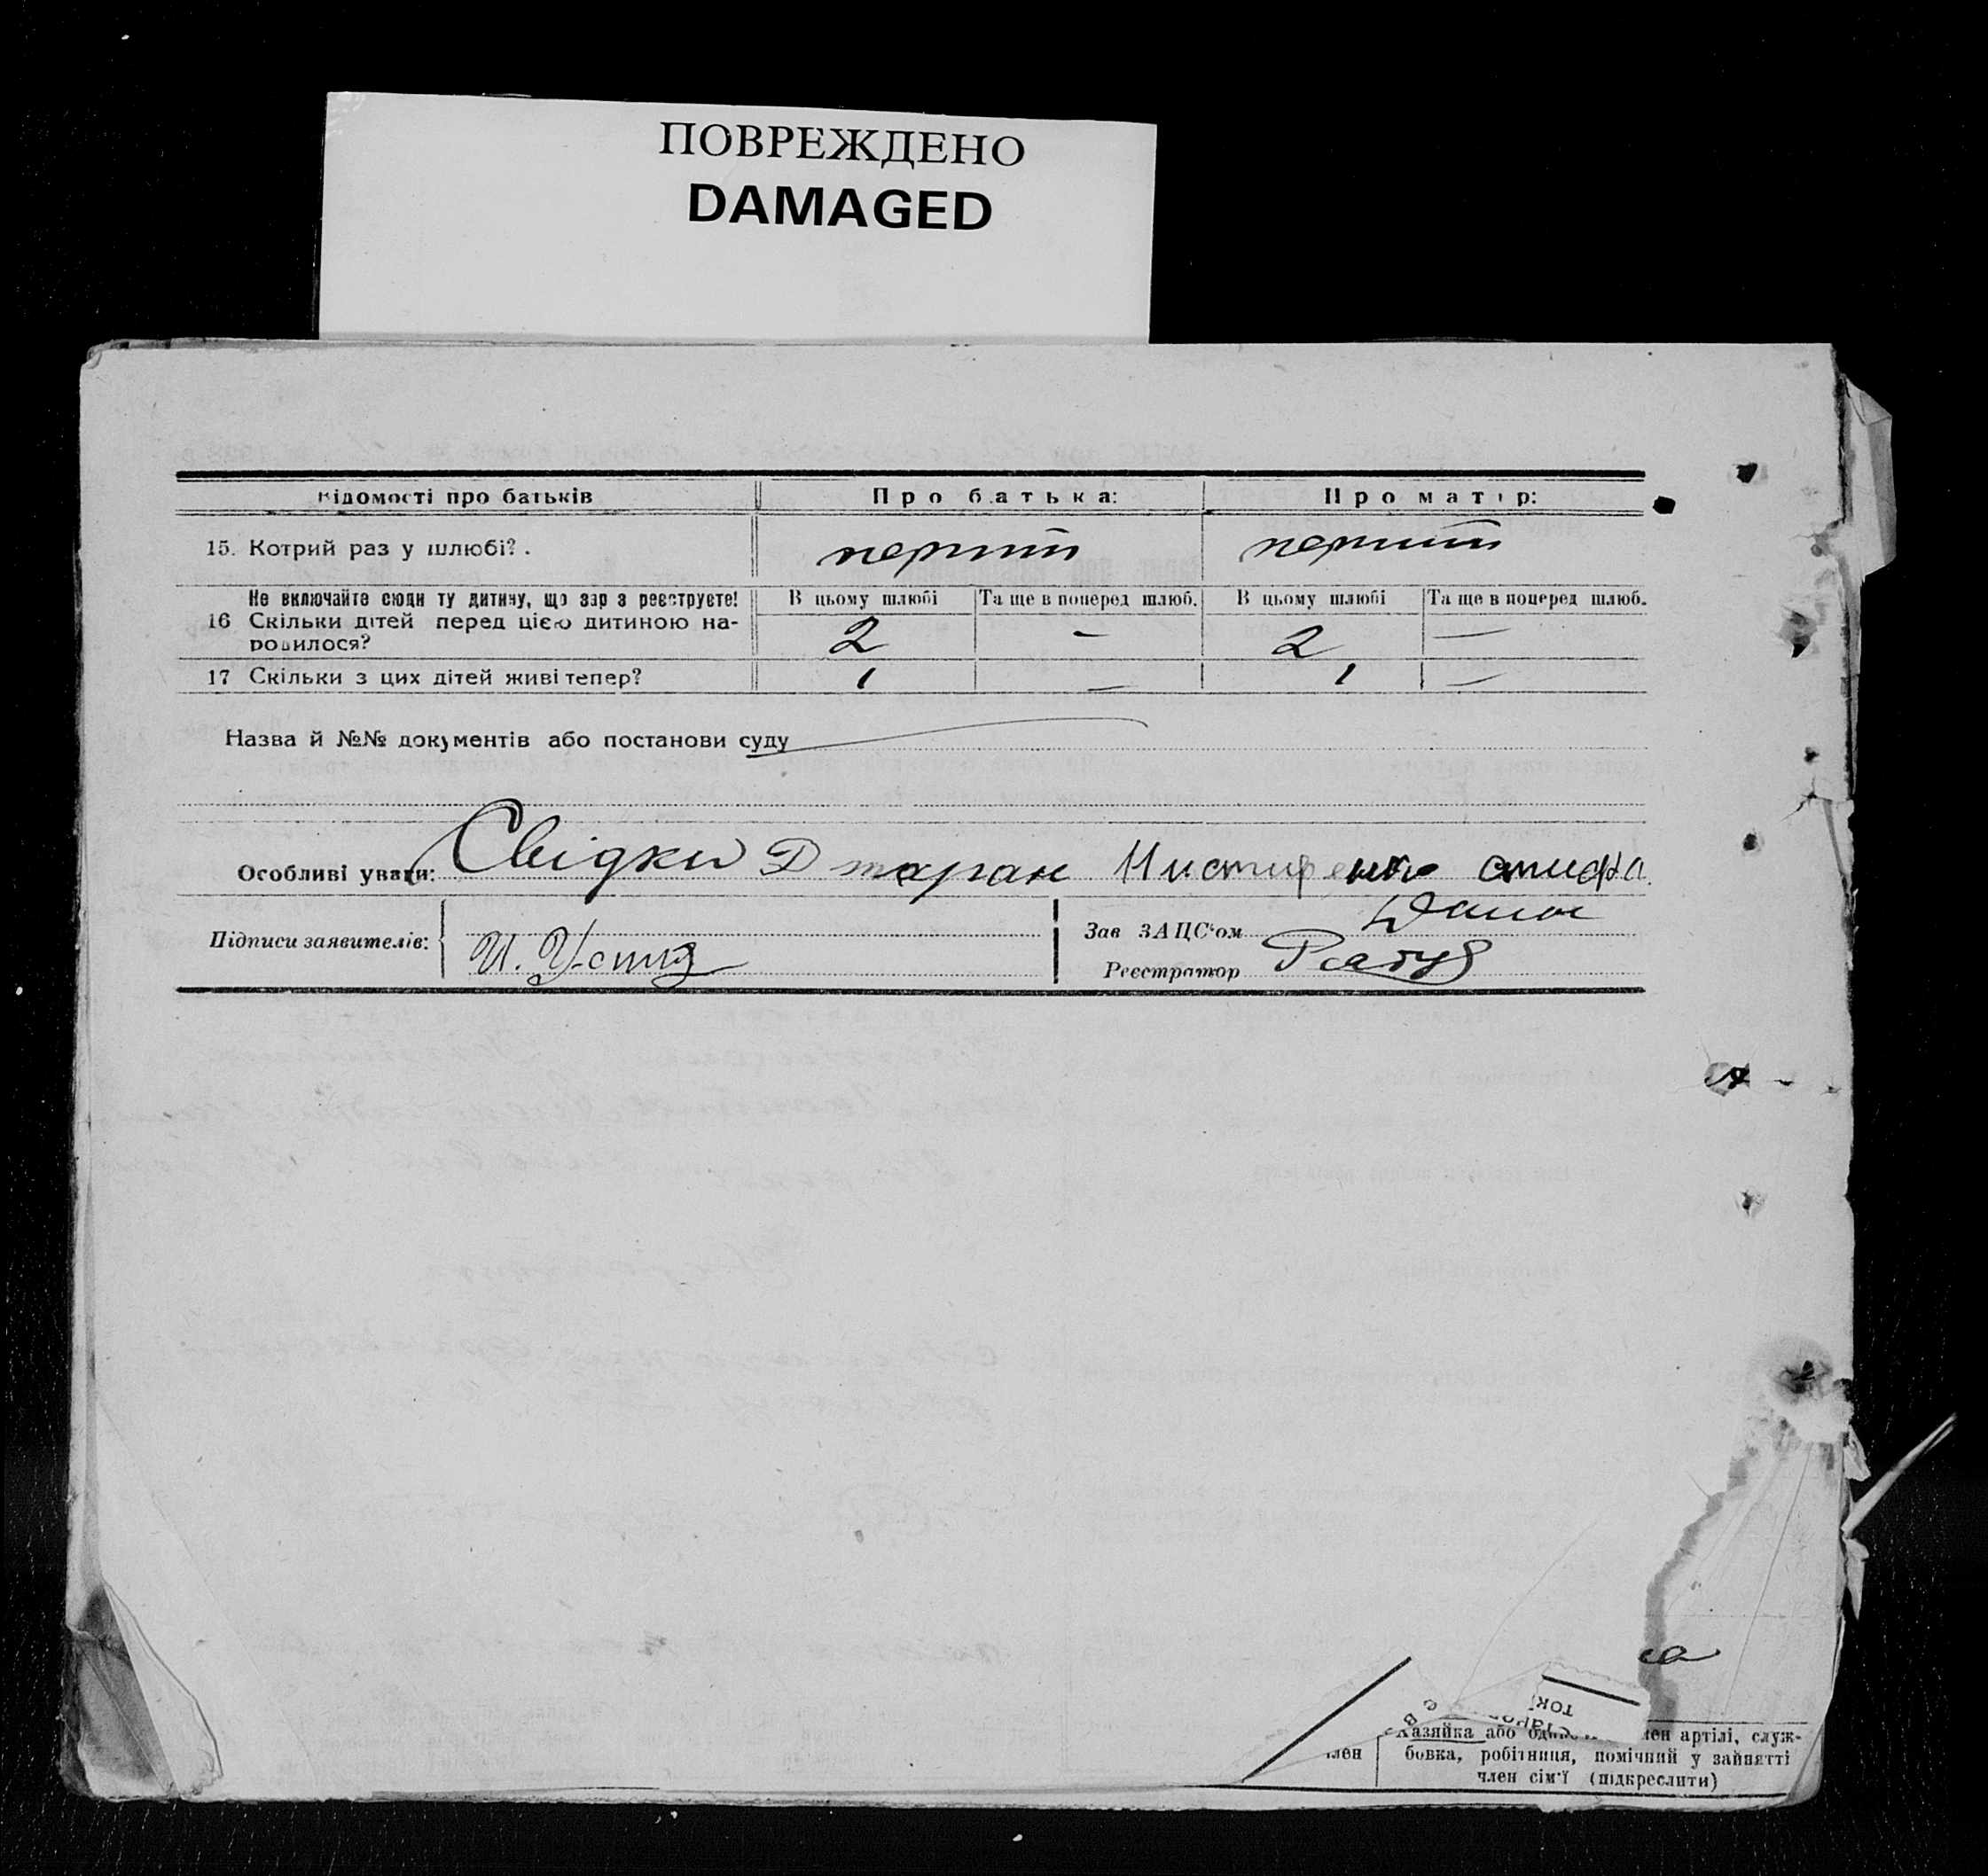 ПОВРЕЖДЕНО
DAMAGED
Відомості про батьків Про батька: Про матір:
15. Котрий раз у шлюбі?. перший перший
Не включайте сюди ту дитину, що зараз реєструєте! В цьому шлюбі Та ще в поперед шлюб. В цьому шлюбі Та ще в поперед шлюб.
16 Скільки дітей перед цією дитиною на-
родилося? 2 - 2 —
17 Скільки з цих дітей живі тепер? 1 — 1 —
Назва й №№ документів або постанови суду
Особливі уваги: Свідки Д таран
Підписи заявителів:
Зав ЗАЦС'ом
Реєстратор
ка
ток
Хазяйка або член артілі, служ-
член бовка, робітниця, помічний у зайнятті
член сім'ї (підкреслити)